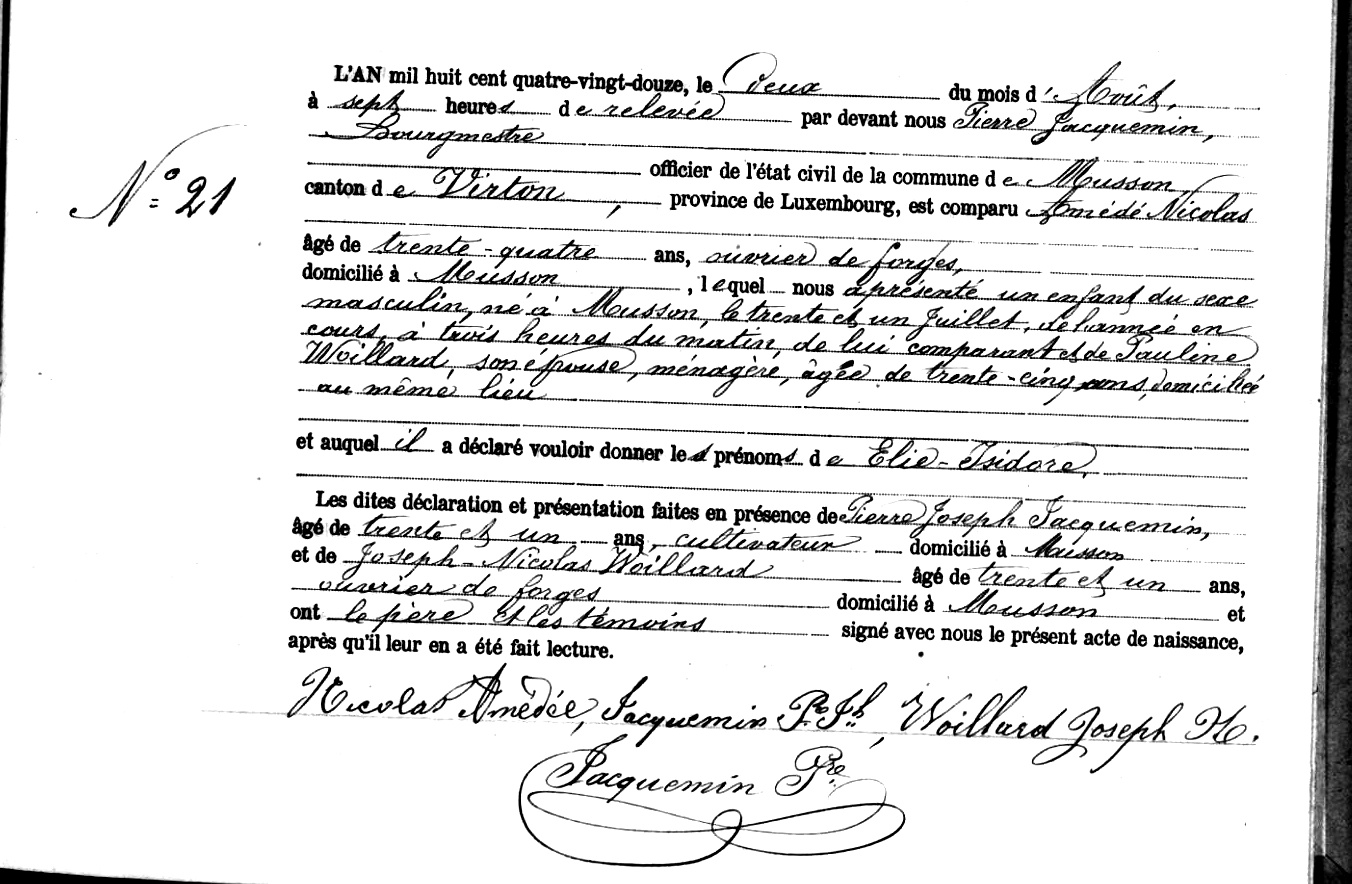 L'AN mil huit cent quatre-vingt-douze, le Deux du mois d'Août,
à sept heures de relevée par devant nous Pierre Jacquemin,
Bourgmestre
officier de l'état civil de la commune de Musson,
N° 21
canton de Virton, province de Luxembourg, est comparu Amédé Nicolas
âgé de trente-quatre ans, ouvrier de forges,
domicilié à Musson, lequel nous a présenté un enfant du sexe
masculin, né à Musson, le trente et un Juillet, de l'année en
cours, à trois heures du matin, de lui comparant et de Pauline
Woillard, son épouse, ménagère, âgée de trente-cinq ans, domiciliée
au même lieu
et auquel il a déclaré vouloir donner les prénoms de Elie-Isidore,
Les dites déclaration et présentation faites en présence de Pierre Joseph Jacquemin,
âgé de trente et un ans, cultivateur domicilié à Musson
et de Joseph-Nicolas Woillard âgé de trente et un ans,
ouvrier de forges domicilié à Musson et
ont le père et les témoins signé avec nous le présent acte de naissance,
après qu'il leur en a été fait lecture.
Nicolas Amédée, Jacquemin Pre Jh, Woillard Joseph N.
Jacquemin Pre